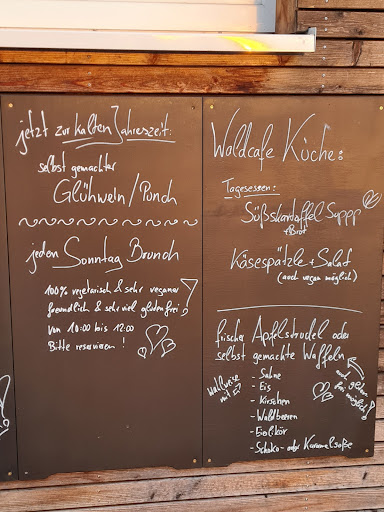 jetzt zur kalten Jahreszeit:
selbst gemachter
Glühwein/Punch
jeden Sonntag Brunch
100% vegetarisch & sehr vegane
freundlich & sehr viel gluten frei!
von 10:00 bis 12:00
Bitte reservieren!
Waldcafe Küche:
Tagesessen:
Süßskartoffel Supp
+Brot
Käsespätzle + Salat
(auch vegan möglich)
frischer Apfelstrudel oder
selbst gemachte Waffeln
wahlweise mit:
- Sahne
- Eis
- Kirschen
- Waldbeeren
- Eierlikör
- Schoko- oder Karamelsoße
auch gluten
frei möglich!